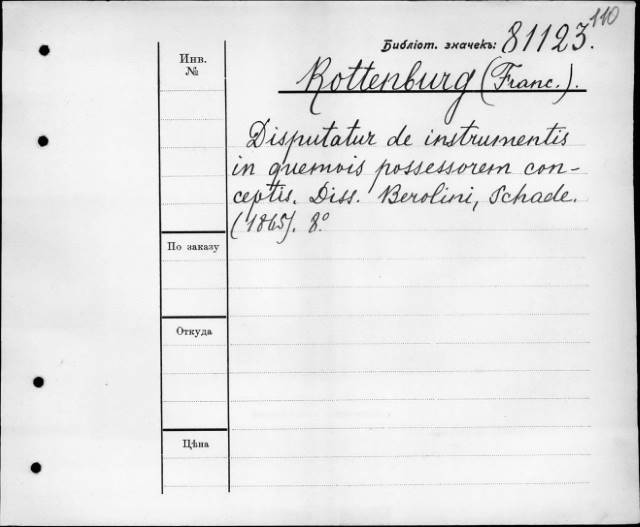 110
Библіот. значекъ: 81123.
Инв.
№
Rottenburg (Franc.).
Disputatur de instrumentis
in quemvis possessorem con-
ceptis. Diss. Berolini, Schade.
(1865). 8°
По заказу
Откуда
Цѣна